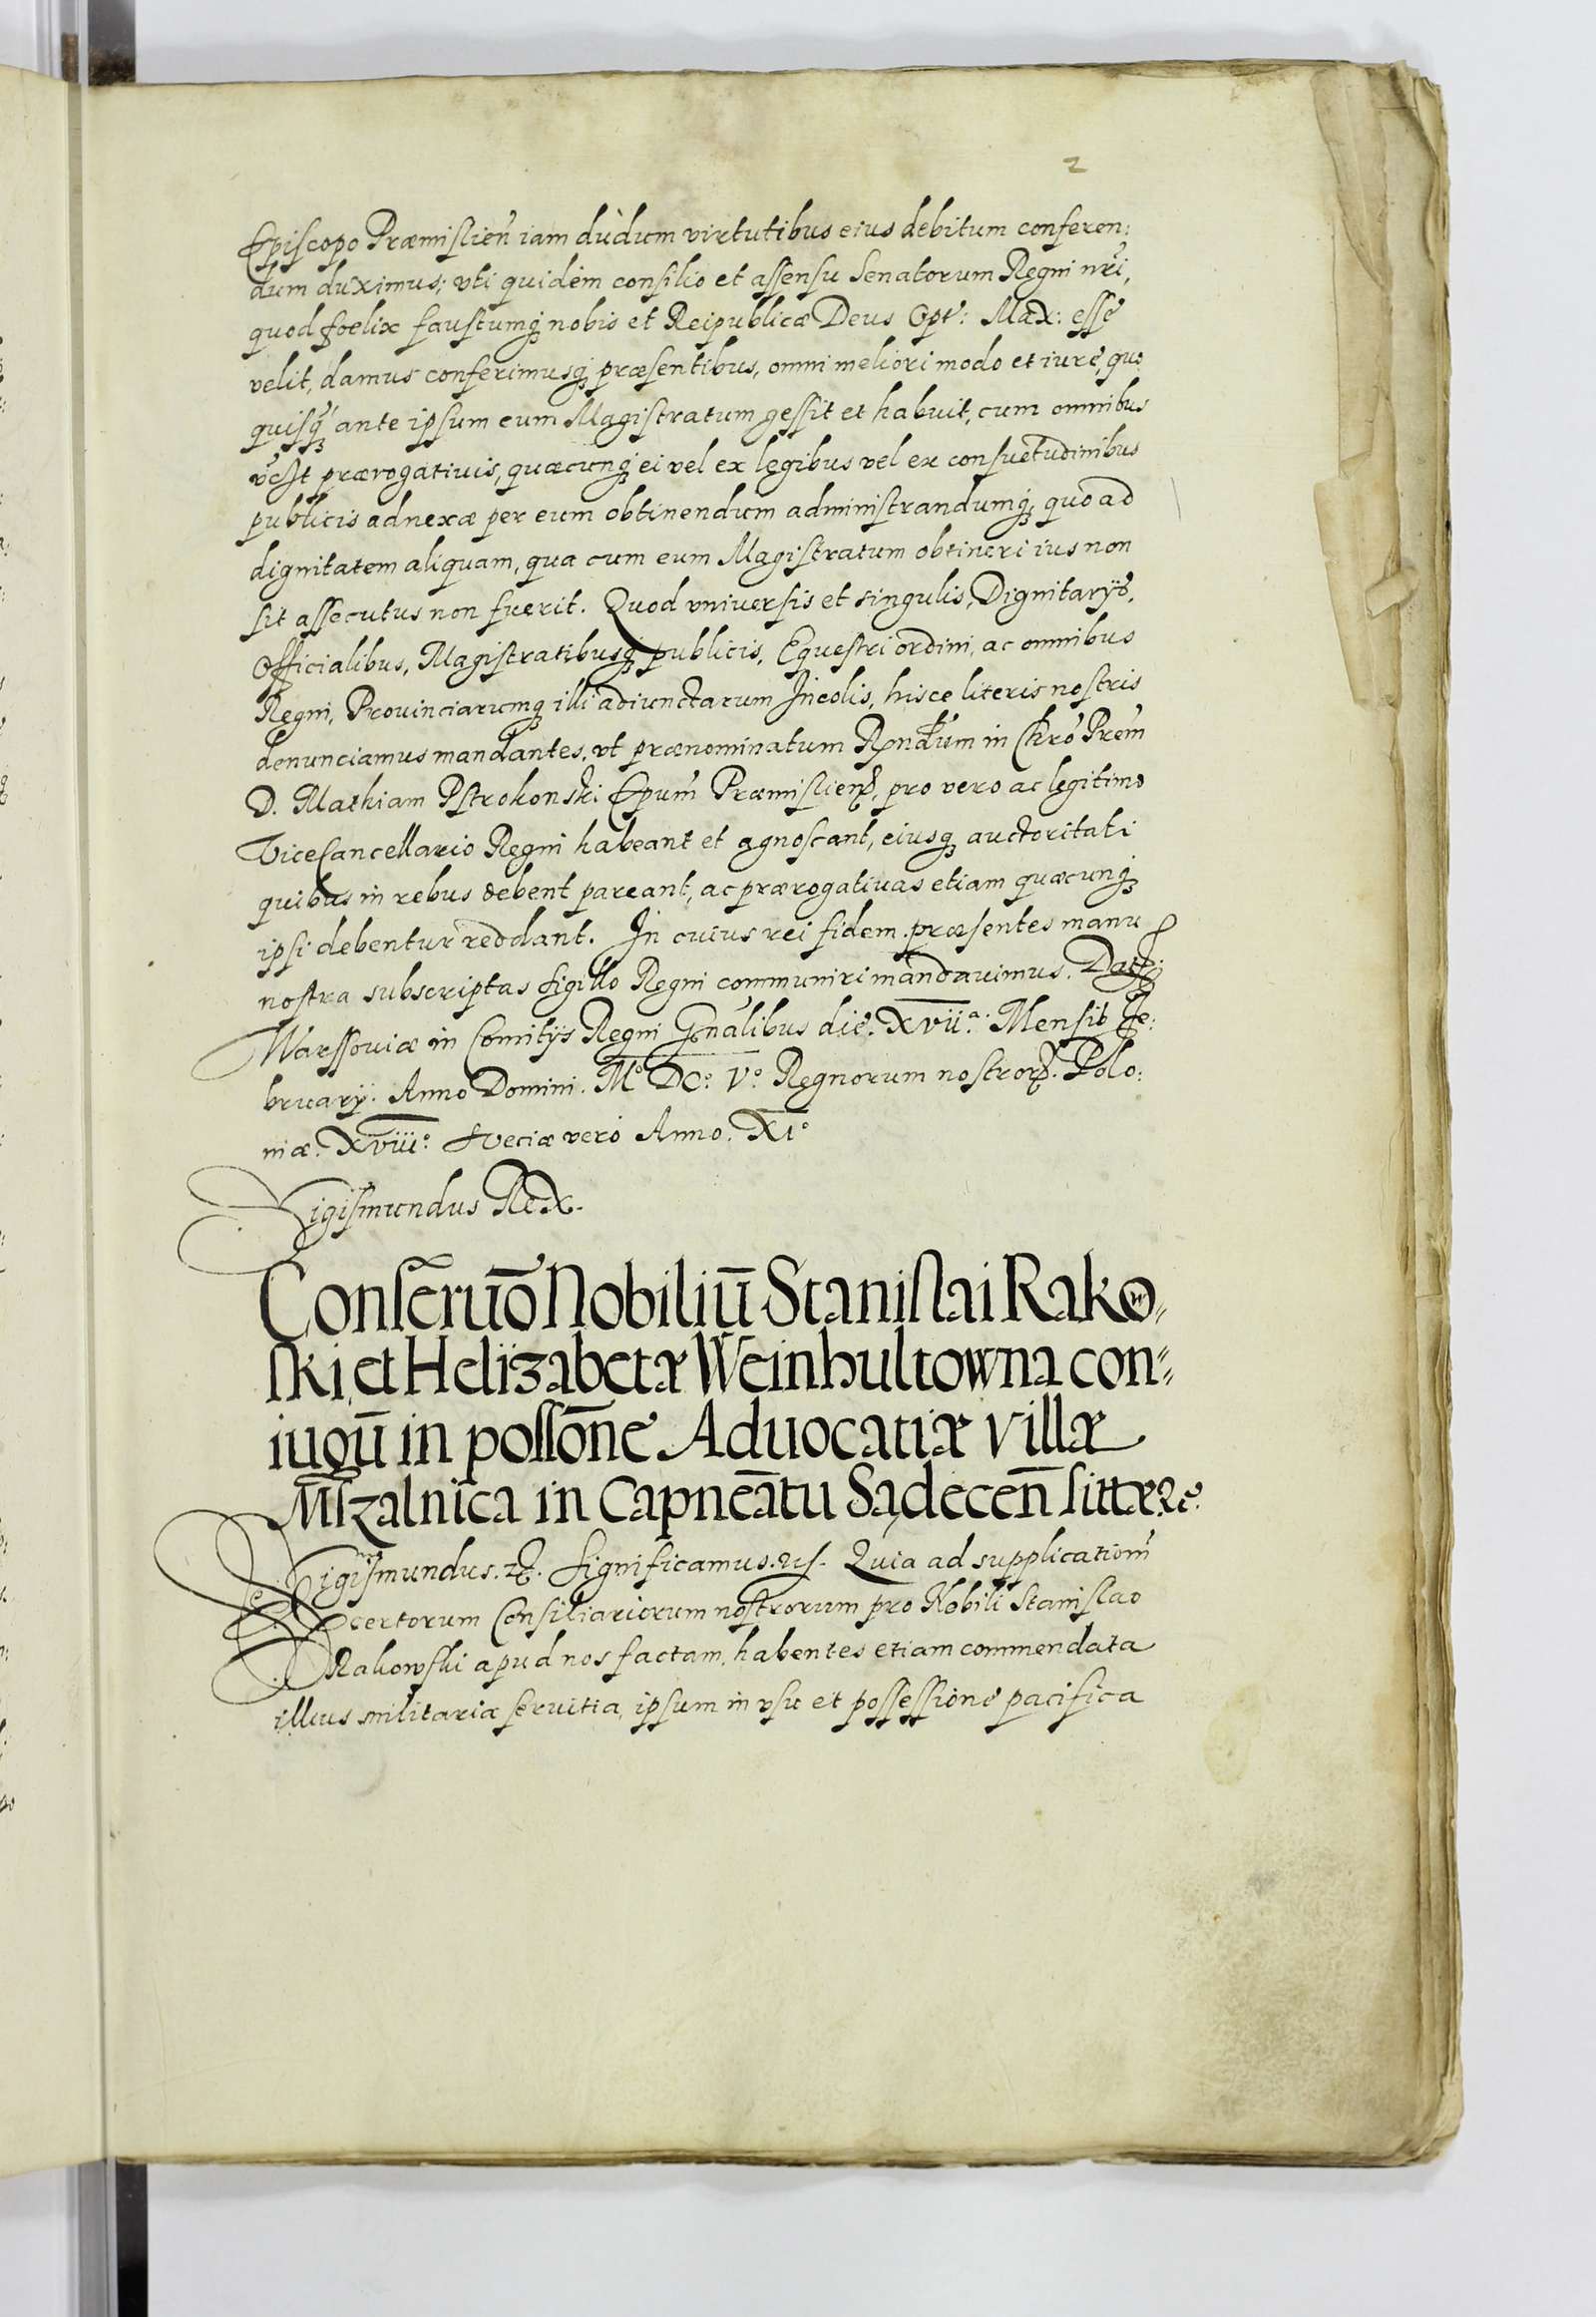 2
Episcopo Præmislien̄ iam dùdum virtutibus eius debitum conferen:
dum duximus; vti quidem consilio et assensu Senatorum Regni nr̄i,
quod foelix faustumq́ nobis et Reipublicæ Deus Opt: Max: esse
velit, damus conferimusq́ præsentibus, omni meliori modo et iure, quo
quisq́ ante ipsum eum Magistratum gessit et habuit, cum omnibus
prærogativis, quæcunq́ ei vel ex legibus vel ex consuetudinibus
publicis adnexæ per eum obtinendum administrandumq́, quoad
dignitatem aliquam, qua cum eum Magistratum obtineri ius non
sit assecutus non fuerit. Quod vniversis et singulis, Dignitarijs,
Officialibus, Magistratibusq́ publicis, Equestri ordini, ac omnibus
Regni, Provinciarumq́ illi adiunctarum Incolis, hisce literis nostris
denunciamus mandantes, vt prænominatum Rṇdum in Chrō Prem̄
D. Mathiam Pstrokonski Epum̄ Præmislien̄, pro vero ac legitimo
ViceCancellario Regni habeant et agnoscant, eiusq́ auctoritati
quibus in rebus debent pareant, ac prærogativas etiam quæcunq́
ipsi debentur reddant. In cuius rei fidem præsentes manu
nostra subscriptas sigillo Regni communiri mandavimus. Dat:
Warssoviæ in Comitijs Regni Gn̄alibus die. XVII.ᵃ Mensis Fe:
bruarij. Anno Domini. M.º DC.º V.º Regnorum nostror. Polo:
niæ. XVIII.º Sveciæ vero Anno. XI.º
Sigismundus Rex.
Conseruō Nobiliū Stanislai Rakow=
ski et Helizabetæ Weinhultowna con=
iugū in possōne Aduocatiæ villæ
Mszalnica in Capneātu Sądecen̄ sittæ ꝛc̄.
Sigismundus. ꝛc. Significamus. ꝛs. Quia ad supplicationem̄
certorum Consiliariorum nostrorum pro Nobili Stanislao
Rakowski apud nos factam, habentes etiam commendata
illius militaria servitia, ipsum in vsu et possessione pacifica